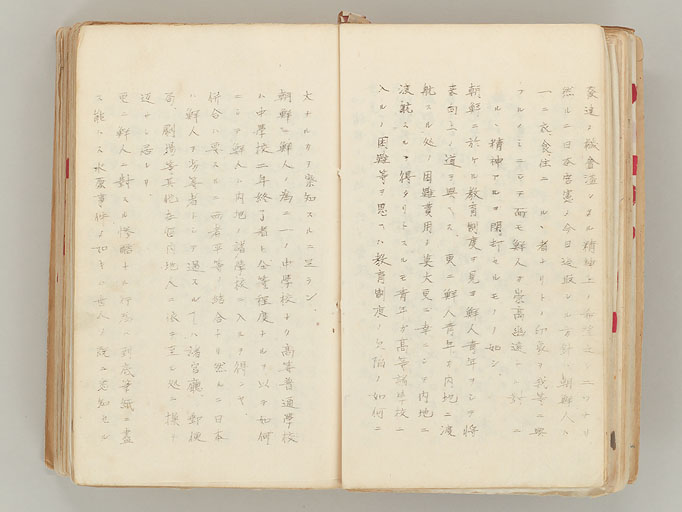 発達ノ機會溢シタル精神上ノ希望 ニワナリ
然ルニ日本官憲ノ今日迄取レル方針 朝鮮人ハ
一ニ衣食住ニ ル、者ナリトノ印象ヲ我等ニ興
フルノミニシテ而モ鮮人ガ崇高幽遠 討 ニ
ル、精神アルヲ閑却セルモノノ如シ
朝鮮ニ於ケル教育制度ヲ見ヨ鮮人青年ヲシテ将
来向上ノ道ヲ與ヘス、更ニ鮮人青年ガ内地ニ渡
航スル処ノ困難費用ノ莫大更ニ幸ニシテ内地ニ
渡航シ得タリトスルモ青年ガ高等諸学校ニ
入ルノ困難等ヲ思ヘハ教育制度ノ欠陥ノ如何ニ
大ナルカヲ察知スルニ足ラン、
朝鮮ニ鮮人ノ為ニ一ノ中學校ナク高等普通學校
ハ中學校二年終了者ト仝等程度ナルヲ以テ如何
ニシテ鮮人ハ内地ノ諸學校ニ入ルヲ得ンヤ、
併合ハ要スルニ両者平等ノ結合ナリ然ルニ日本
ハ鮮人ヲ劣等者トシテ遇スルノ 諸官廳、郵便
局、劇場等其他在住内地人ニ依テ至ル処ニ横
迫サレ居レリ
更ニ鮮人ニ對スル惨酷ナル行為ハ到底筆紙ニ盡
ス能ハス水原事件ノ如キハ世人ノ既ニ忘知セル